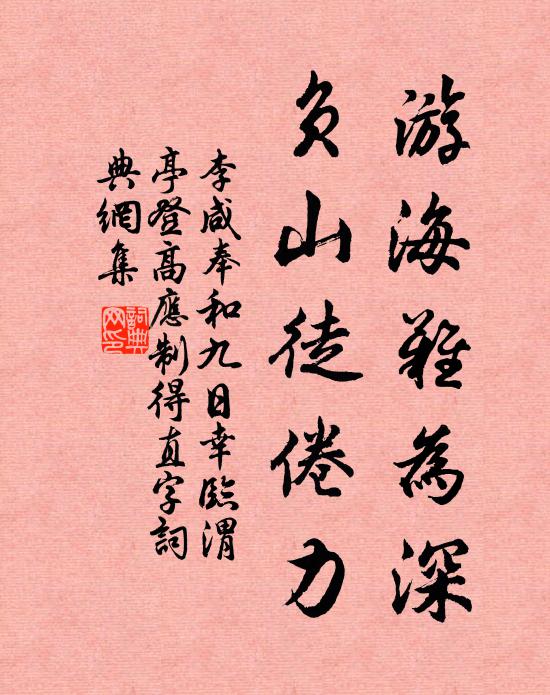 游海難為深
負山徒倦力
李咸奉和九日幸臨渭
亭登高應制得直字詞
典網集
詞典網印